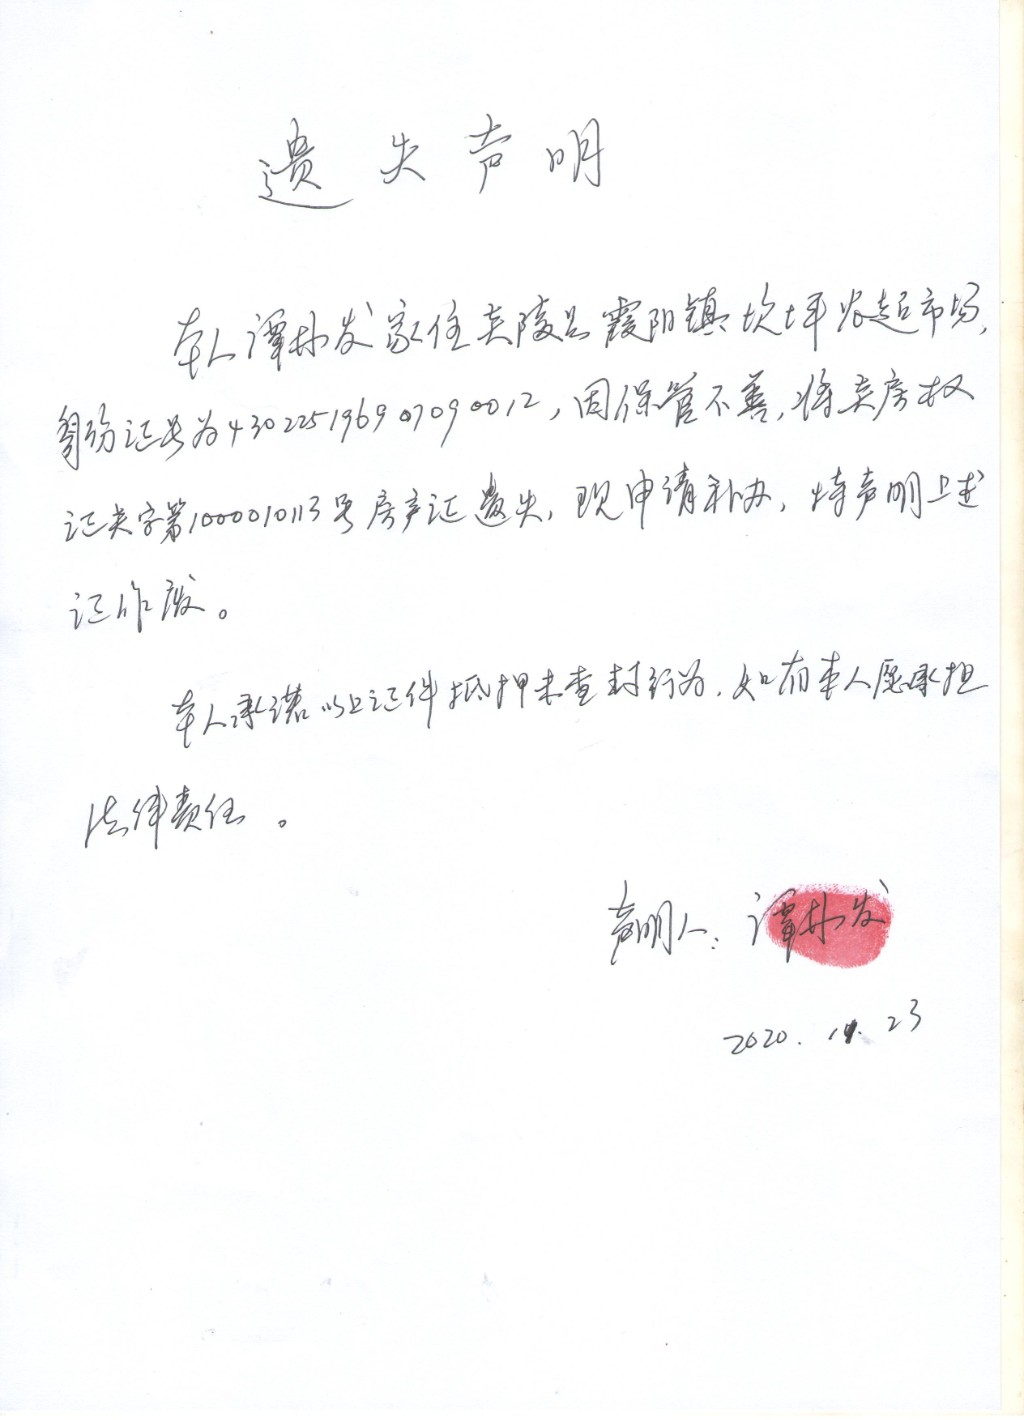 遗失声明
本人谭朴发家住炎陵县霞阳镇坎坪农超市场,
身份证号为430225196907090012,因保管不善,将炎房权
证炎字第1000010113号房产证遗失,现申请补办,特声明上述
证作废。
本人承诺以上证件抵押未查封行为,如有本人愿承担
法律责任。
声明人:谭朴发
2020. . 23